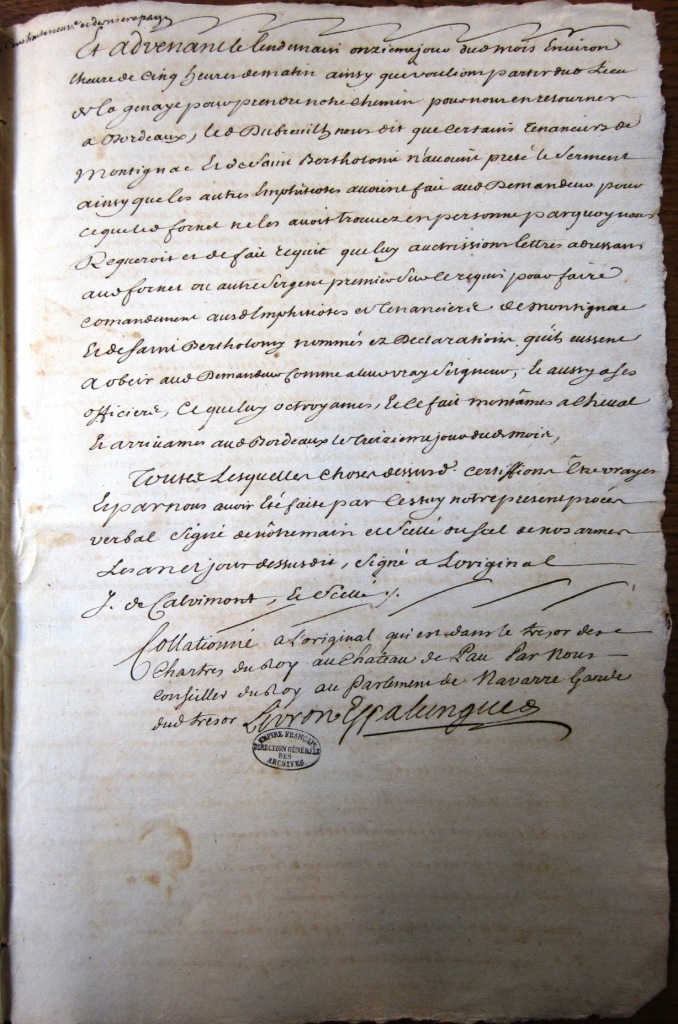 et derniere page
Et advenant le lendemain onzieme jour dud mois Environ
lheure de Cinq heures de matin ainsy que voulions partir dud Lieu
de la genaye pour prendre notre Chemin pour nous en retourner
a Bordeaux, led Dubreuilh nous dit que Certains tenanciers de
Montignac Et de Saint Bertholomé n'avoient preté le Serment
ainsy que les autres Emphiteotes avoient fait aud Demandeur pour
ce que led fornet ne les avoit trouvez en personne parquoy nous
Requeroit et de fait requit que luy auctrissions lettres adressans
aud fornet ou autre Sergent premier Sur le requis pour faire
comandement ausd Emphiteotes et Tenanciers de Montignac
Et de Saint Bertholomy nommés ez Declarations qu'ils eussent
a obeir aud Demandeur Comme a leur vray Seigneur, Et aussy a ses
officiers, Ce que luy octroyames, Et ce fait montâmes a Cheval
Et arrivames aud Bordeaux le treizieme jour dud mois,
Toutes Lesquelles choses dessusd. certiffions Etre vrayes
Et par nous avoir été faites par Cestuy notre present procés
verbal Signé de nôtre main et Scellé du Scel de nos armes
Les an et jour dessusdit, Signé a L'original
J. de Calvimont, Et Scellé ./.
Collationné a L'original qui est dans le tresor des
Chartres du Roy au Chateau de Pau Par Nous
Conseiller du Roy au Parlement de Navarre Garde
dud tresor Livron Espalungue
EMPIRE FRANÇAIS
DIRECTION GÉNÉRALE
DES
ARCHIVES